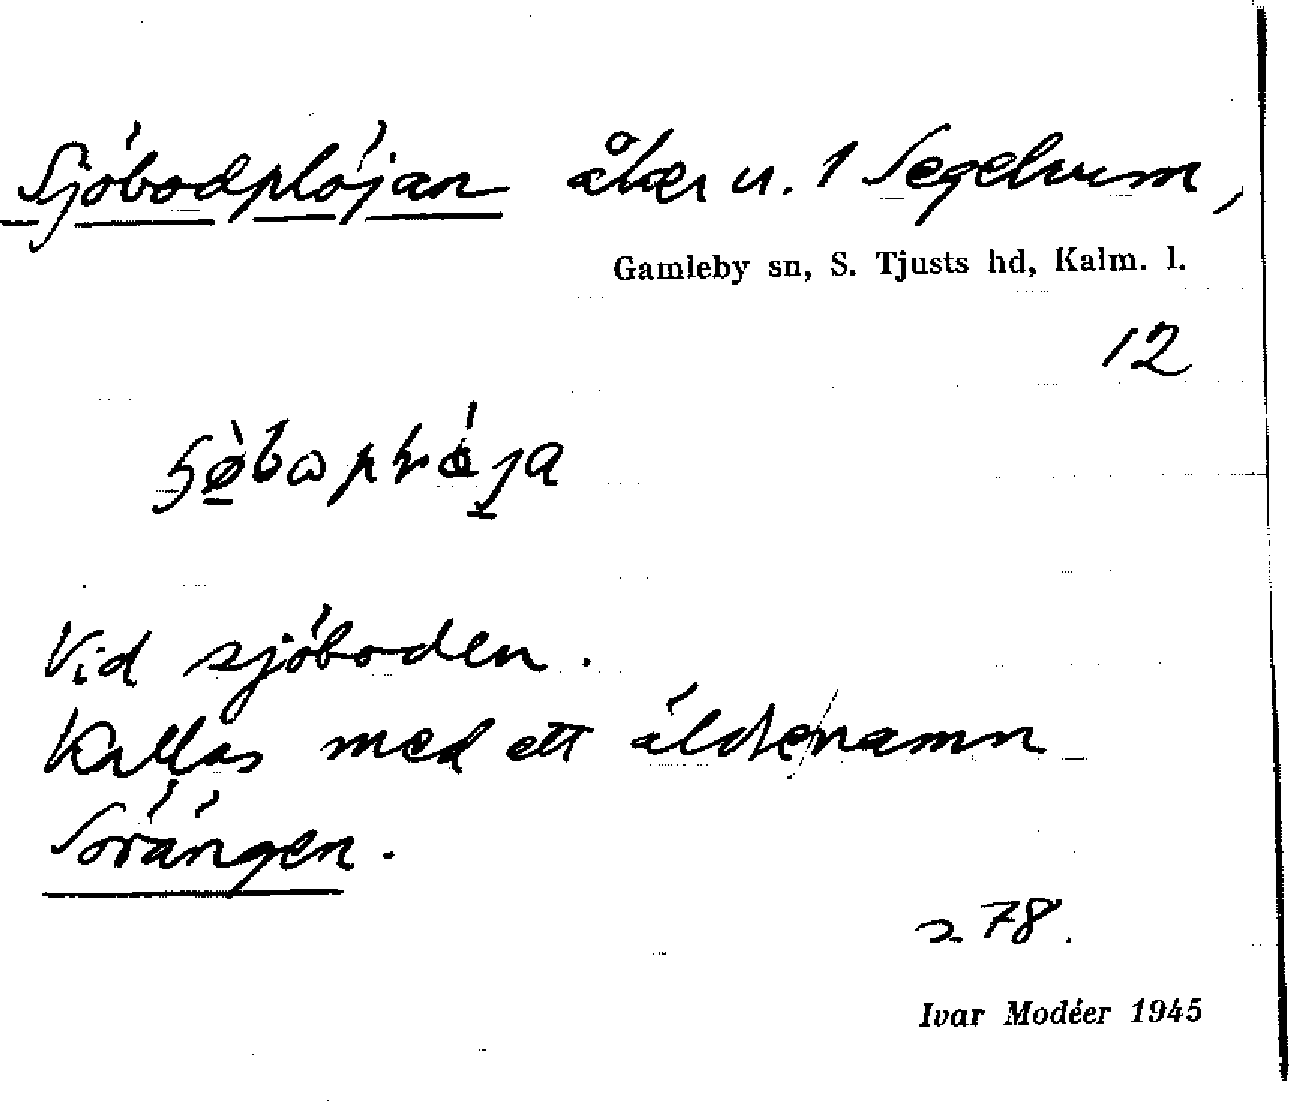 Sjöbodplöjan åker u. 1 Segelrum,
Gamleby sn, S. Tjusts hd, Kalm. l.
12
Vid sjöboden.
Kallas med ett äldre namn
Sörängen.
s 78.
Ivar Modéer 1945